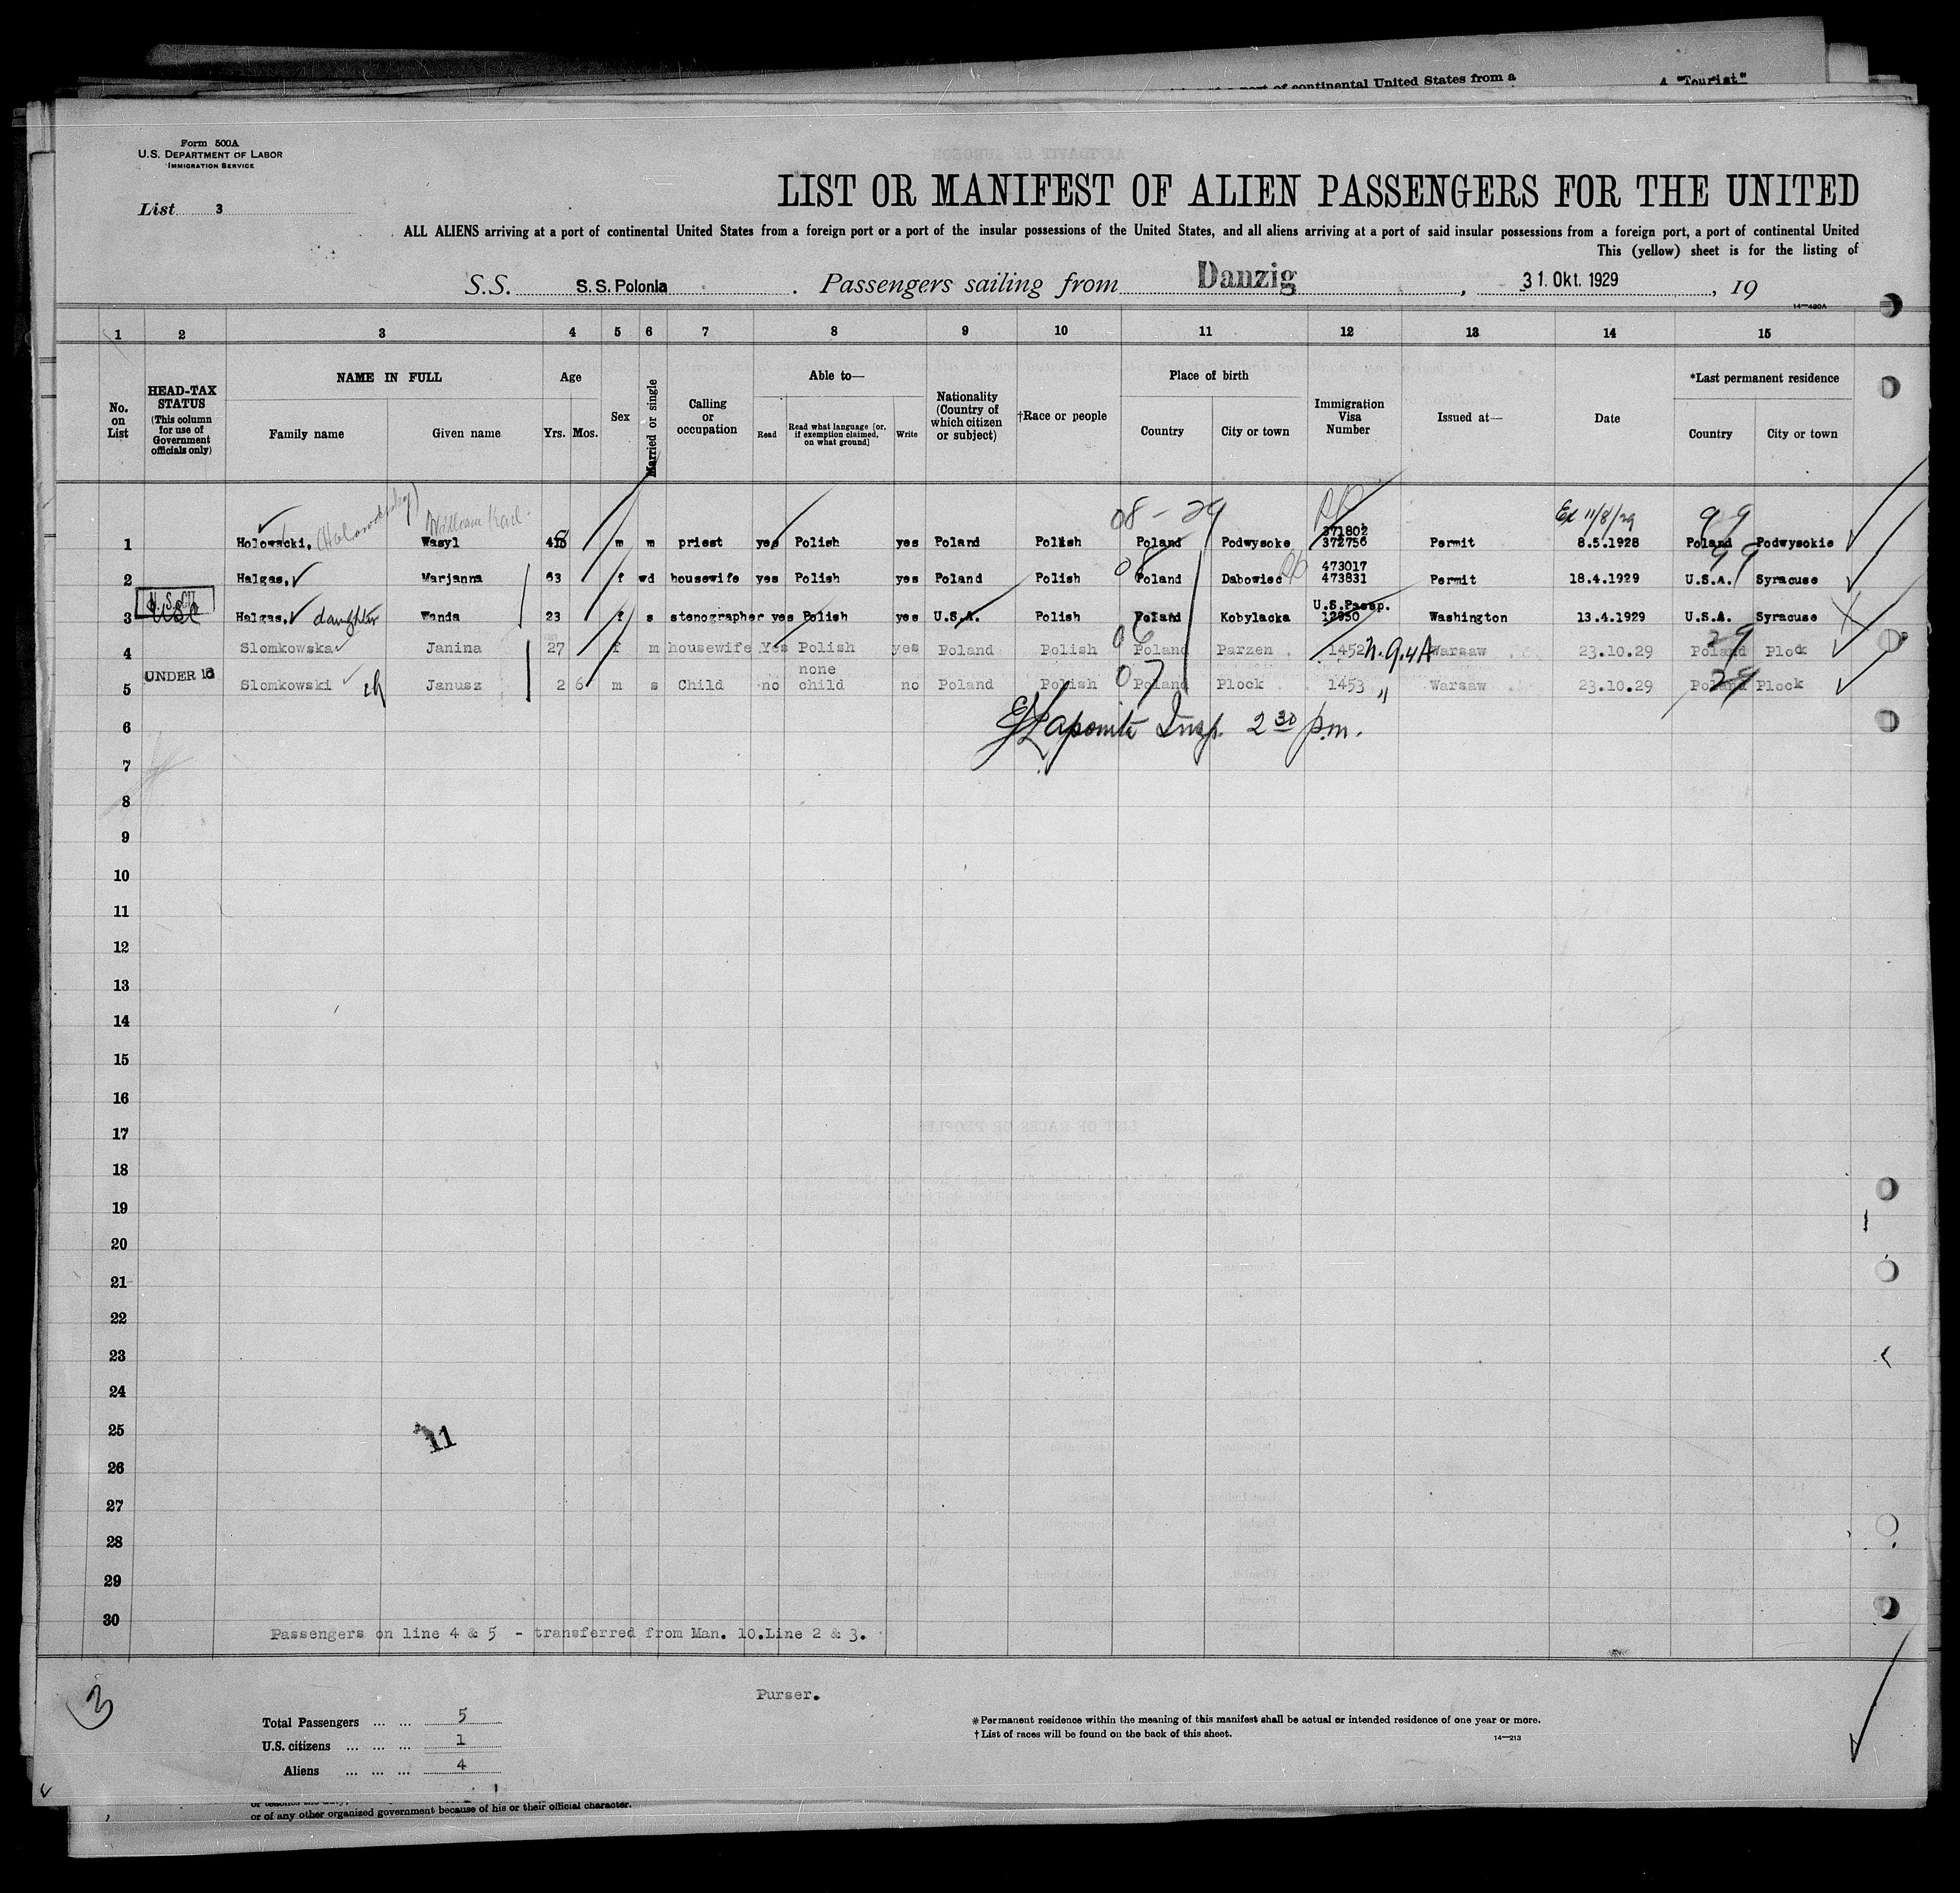 t a port of continental United States from a
A "Tourist"
Form 500A
U.S. DEPARTMENT OF LABOR
IMMIGRATION SERVICE
List 3
LIST OR MANIFEST OF ALIEN PASSENGERS FOR THE UNITED
ALL ALIENS arriving at a port of continental United States from a foreign port or a port of the insular possessions of the United States, and all aliens arriving at a port of said insular possessions from a foreign port, a port of continental United
This (yellow) sheet is for the listing of
S.S. S.S. Polonia . Passengers sailing from Danzig , 31. Okt. 1929 , 19
14—480A
1 2 3 4 5 6 7 8 9 10 11 12 13 14 15
No. on List
HEAD-TAX STATUS (This column for use of Government officials only)
NAME IN FULL
Family name Given name
Age
Yrs. Mos.
Sex
Married or single
Calling or occupation
Able to—
Read
Read what language [or, if exemption claimed, on what ground]
Write
Nationality (Country of which citizen or subject)
†Race or people
Place of birth
Country City or town
Immigration Visa Number
Issued at—
Date
*Last permanent residence
Country City or town
08 - 29 Ex 11/8/29 99
371802
1 Holowacki, Wasyl m m priest yes Polish yes Poland Polish Poland Podwysoke 372756 Permit 8.5.1928 Poland Podwysokie
08 99
473017
2 Halgas, Marjanna 63 f wd housewife yes Polish yes Poland Polish Poland Dabowiec 473831 Permit 18.4.1929 U.S.A. Syracuse
U.S. Passp.
3 Halgas, daughter Wanda 23 f s stenographer yes Polish yes U.S.A. Polish Poland Kobylacka 12950 Washington 13.4.1929 U.S.A. Syracuse
06 29
4 Slomkowska Janina 27 f m housewife Yes Polish yes Poland Polish Poland Parzen 1452 Warsaw 23.10.29 Poland Plock
UNDER 16
none
5 Slomkowski ch Janusz 2 6 m s Child no child no Poland Polish 07 Poland Plock 1453 " Warsaw 23.10.29 29 Poland Plock
6 Insp. 2 30 p.m.
7
8
9
10
11
12
13
14
15
16
17
18
19
20
21
22
23
24
25
11
26
27
28
29
30
Passengers on line 4 & 5 - transferred from Man. 10.Line 2 & 3.
3
Purser.
Total Passengers ... ... 5
U.S. citizens ... ... ... 1
Aliens ... ... ... 4
*Permanent residence within the meaning of this manifest shall be actual or intended residence of one year or more.
†List of races will be found on the back of this sheet.
14—213
or of any other organized government because of his or their official character.